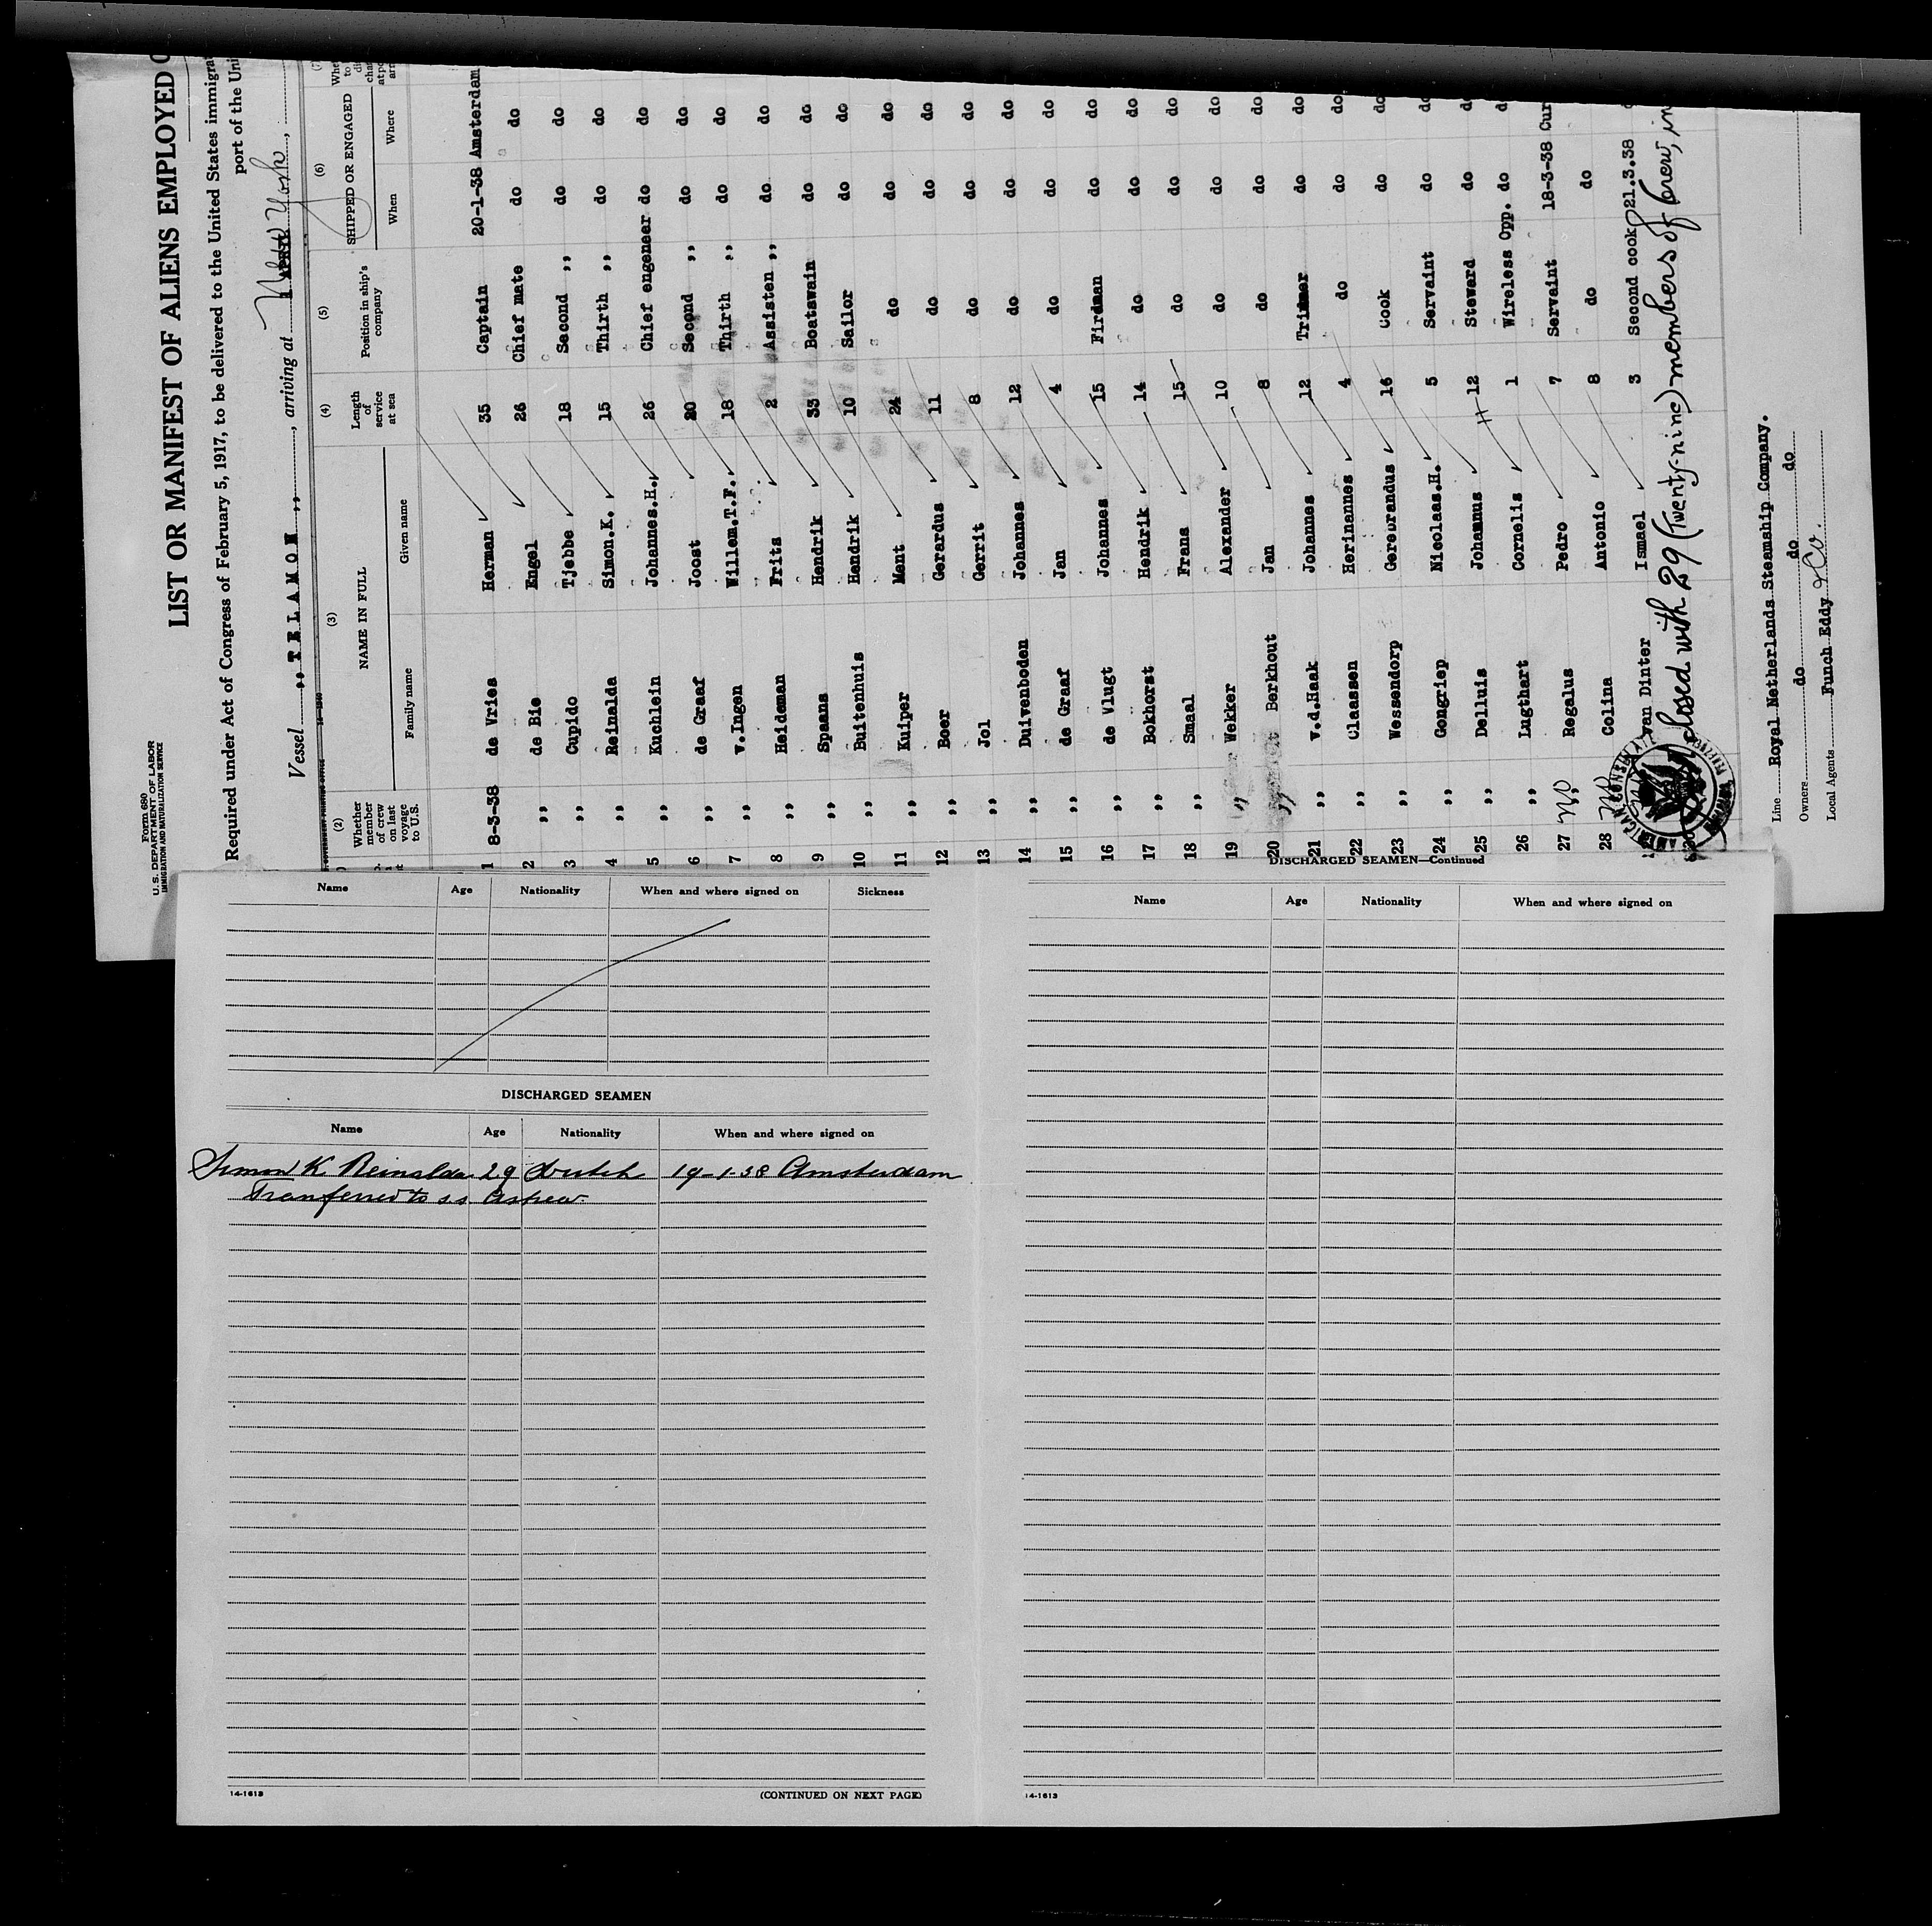 Form 680
U. S. DEPARTMENT OF LABOR
IMMIGRATION AND NATURALIZATION SERVICE
LIST OR MANIFEST OF ALIENS EMPLOYED
Required under Act of Congress of February 5, 1917, to be delivered to the United States immigra
port of the Uni
Vessel ,, TELAMON ,, , arriving at New York ,
(2) Whether member of crew on last voyage to U.S.
(3) NAME IN FULL
Family name Given name
(4) Length of service at sea
(5) Position in ship's company
(6) SHIPPED OR ENGAGED
When Where
(7)
1 8-3-38 de Vries Herman 35 Captain 20-1-38 Amsterdam
2 ,, de Bie Engel 26 Chief mate do do
3 ,, Cupido Tjebbe 18 Second ,, do do
4 ,, Reinalda Simon.K. 15 Thirth ,, do do
5 ,, Kuchlein Johannes.H. 26 Chief engeneer do do
6 ,, de Graaf Joost 20 Second ,, do do
7 ,, v.Ingen Willem.T.F. 18 Thirth ,, do do
8 ,, Heideman Frits 2 Assisten ,, do do
9 ,, Spaans Hendrik 33 Boatswain do do
10 ,, Buitenhuis Hendrik 10 Sailor do do
11 ,, Kuiper Ment 24 do do do
12 ,, Boer Gerardus 11 do do do
13 ,, Jol Gerrit 8 do do do
14 ,, Duivenboden Johannes 12 do do do
15 ,, de Graaf Jan 4 do do do
16 ,, de Vlugt Johannes 15 Fireman do do
17 ,, Bokhorst Hendrik 14 do do do
18 ,, Smaal Frans 15 do do do
19 ,, Wekker Alexander 10 do do do
20 ,, Berkhout Jan 8 do do do
21 ,, v.d.Haak Johannes 12 Trimmer do do
22 ,, Claassen Herinannes 4 do do do
23 ,, Wessendorp Gerebrandus 16 Cook do do
24 ,, Gongriep Nicolaas.H. 5 Servaint do do
25 ,, Delluis Johannus 12 Steward do do
26 ,, Lugthart Cornelis 1 Wireless Opp. do d
27 no Regalus Pedro 7 Servaint 18-3-38 Cur
28 no Colina Antonio 8 do do
van Dinter Ismael 3 Second cook 21.3.38 d
closed with 29 (Twenty-nine) members of crew, in
Line Royal Netherlands Steamship Company.
Owners do do do
Local Agents Funch Eddy & Co.
Name Age Nationality When and where signed on Sickness
DISCHARGED SEAMEN
Name Age Nationality When and where signed on
Simon K Reinalda 29 dutch 19-1-38 Amsterdam
Tranferred to s.s.
14-1613 (CONTINUED ON NEXT PAGE)
DISCHARGED SEAMEN—Continued
Name Age Nationality When and where signed on
14-1613